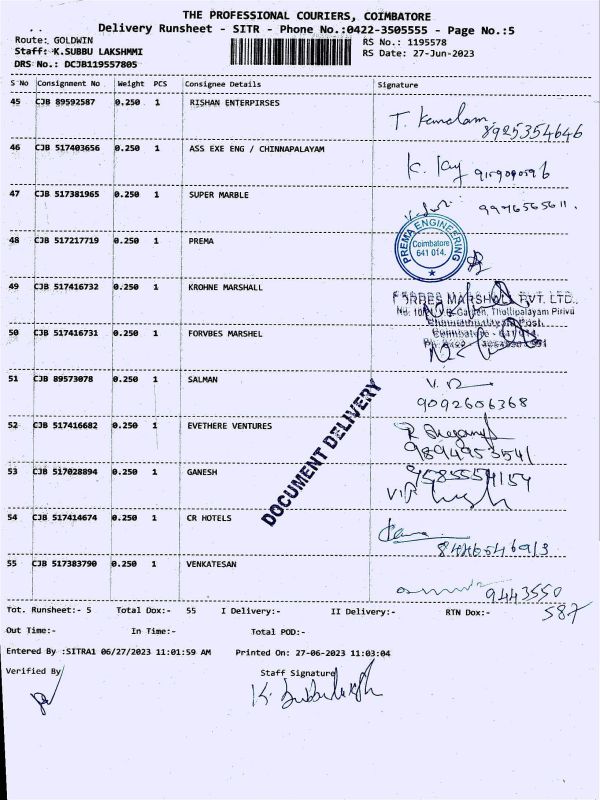 THE PROFESSIONAL COURIERS, COIMBATORE
Delivery Runsheet - SITR - Phone No.:0422-3505555 - Page No.:5
Route: GOLDWIN
RS No.: 1195578
Staff: K.SUBBU LAKSHMMI
RS Date: 27-Jun-2023
DRS No.: DCJB119557805
S No Consignment No Weight PCS Consignee Details Signature
45 CJB 89592587 0.250 1 RISHAN ENTERPIRSES
8925354646
46 CJB 517403656 0.250 1 ASS EXE ENG / CHINNAPALAYAM
47 CJB 517381965 0.250 1 SUPER MARBLE
9976565611.
48 CJB 517217719 0.250 1 PREMA
PREMA ENGINEERING
Coimbatore
641 014.
49 CJB 517416732 0.250 1 KROHNE MARSHALL
FORBES MARSHALL PVT. LTD.,
50 CJB 517416731 0.250 1 FORVBES MARSHEL
51 CJB 89573078 0.250 1 SALMAN
9092606368
DOCUMENT DELIVERY
52 CJB 517416682 0.250 1 EVETHERE VENTURES
9894953541
53 CJB 517028894 0.250 1 GANESH
9585554154
54 CJB 517414674 0.250 1 CR HOTELS
55 CJB 517383790 0.250 1 VENKATESAN
9443550
587
Tot. Runsheet:- 5 Total Dox:- 55 I Delivery:- II Delivery:- RTN Dox:-
Out Time:- In Time:- Total POD:-
Entered By :SITRA1 06/27/2023 11:01:59 AM Printed On: 27-06-2023 11:03:04
Verified By Staff Signature